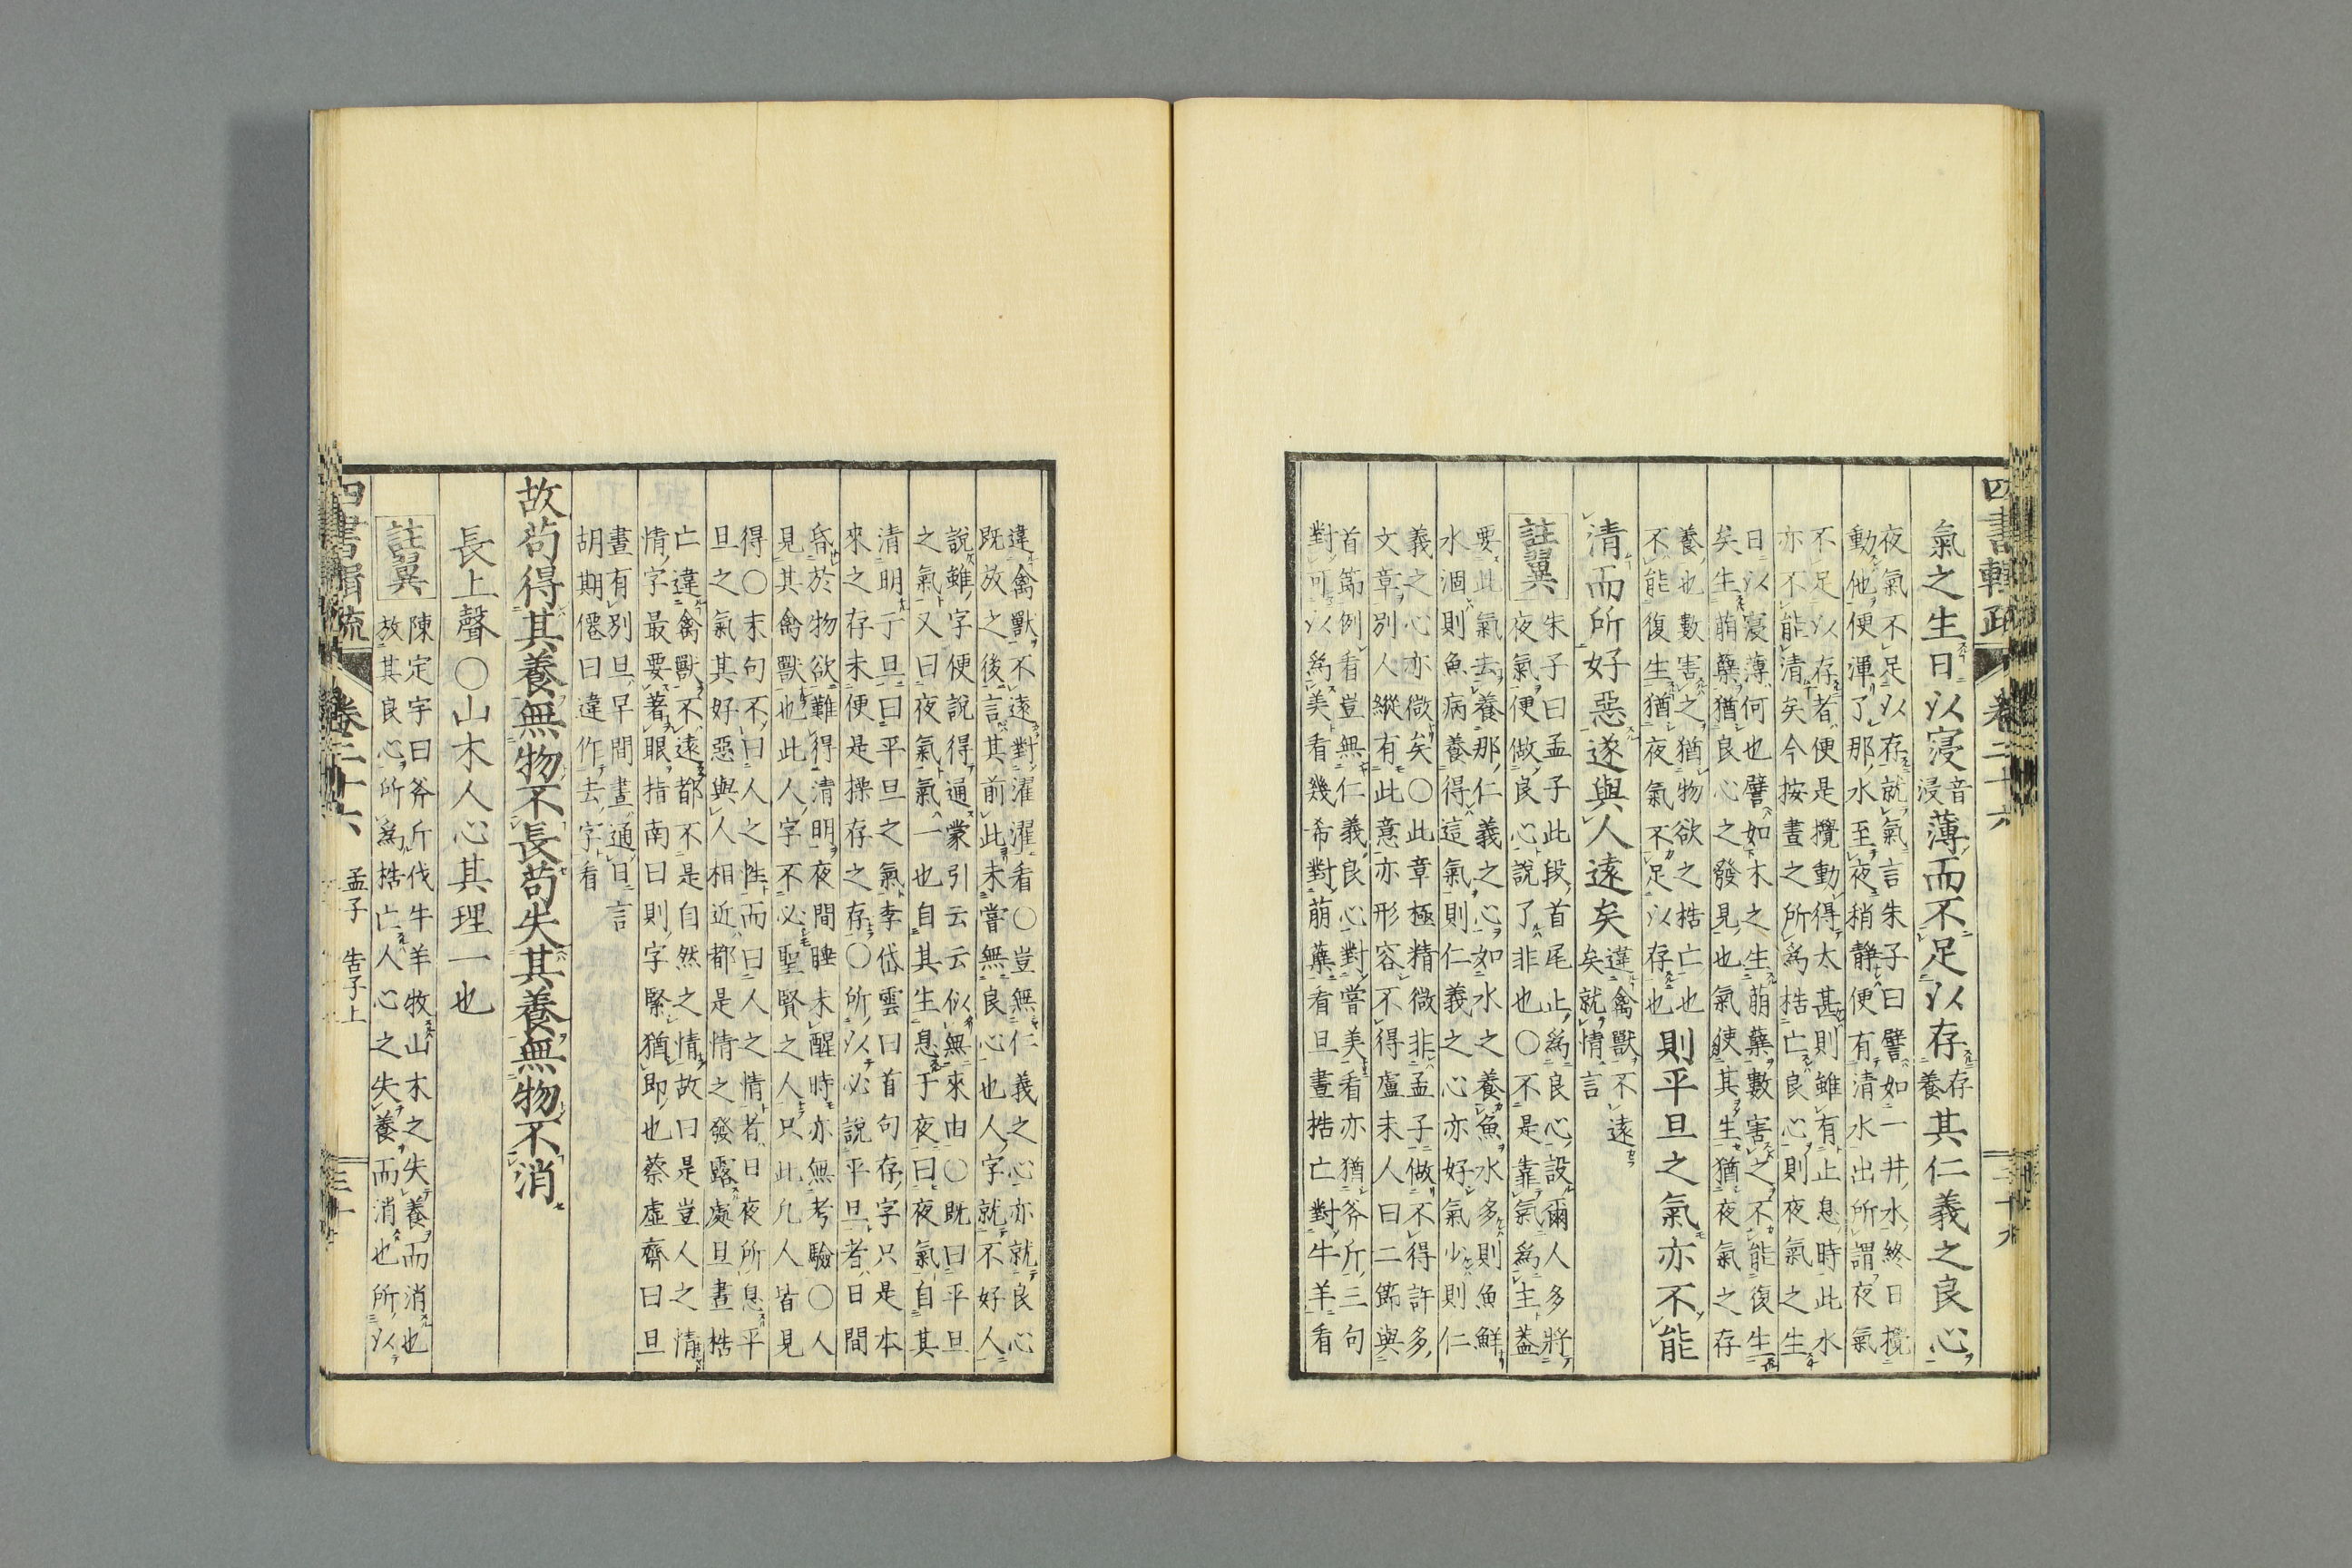 四書輯疏 卷二十六 二十九
氣之生日以寖音浸薄而不足以存存養其仁義之良心
夜氣不足以存就氣言朱子曰譬如一井水終日攪
動他便渾了那水至夜稍靜便有清水出所謂夜氣
不足以存者便是攪動得太甚則雖有止息時此水
亦不能清矣今按晝之所爲梏亡良心則夜氣之生
日以寖薄何也譬如木之生萌蘖數害之不能復生
矣生萌蘖猶良心之發見也氣使其生猶夜氣之存
養也數害之猶物欲之梏亡也
不能復生猶夜氣不足以存也則平旦之氣亦不能
清而所好惡遂與人遠矣違禽獸不遠
矣就情言
註翼 朱子曰孟子此段首尾止爲良心設爾人多將
夜氣便做良心說了非也〇不是靠氣爲主蓋
要此氣去養那仁義之心如水之養魚水多則魚鮮
水涸則魚病養得這氣則仁義之心亦好氣少則仁
義之心亦微矣〇此章極精微非孟子做不得許多
文章別人縱有此意亦形容不得盧未人曰二節與
首節例看豈無仁義良心對嘗美看亦猶斧斤三句
對可以爲美看幾希對萌蘖看旦晝梏亡對牛羊看
違禽獸不遠對濯濯看〇豈無仁義之心亦就良心
既放之後言其前此未嘗無良心也人字就不好人
說雖字便說得通蒙引云云似無來由〇既曰平旦
之氣又曰夜氣氣一也自其生息于夜曰夜氣自其
清明于旦曰平旦之氣李岱雲曰首句存字只是本
來之存未便是操存之存〇所以必說平旦者日間
昏於物欲難得清明夜間睡未醒時亦無考驗〇人
見其禽獸也此人字不必聖賢之人只此凡人皆見
得〇末句不曰人之性而曰人之情者日夜所息平
旦之氣其好惡與人相近都是情之發露處旦晝梏
亡違禽獸不遠都不是自然之情故曰是豈人之情
情字最要著眼指南曰則字緊猶即也蔡虛齋曰旦
晝有別旦早間晝通日言
胡期僊曰違作去字看
故苟得其養無物不長苟失其養無物不消
長上聲〇山木人心其理一也
註翼 陳定宇曰斧斤伐牛羊牧山木之失養而消也
放其良心所爲梏亡人心之失養而消也所以
四書輯疏 卷二十六 孟子 告子上 三十